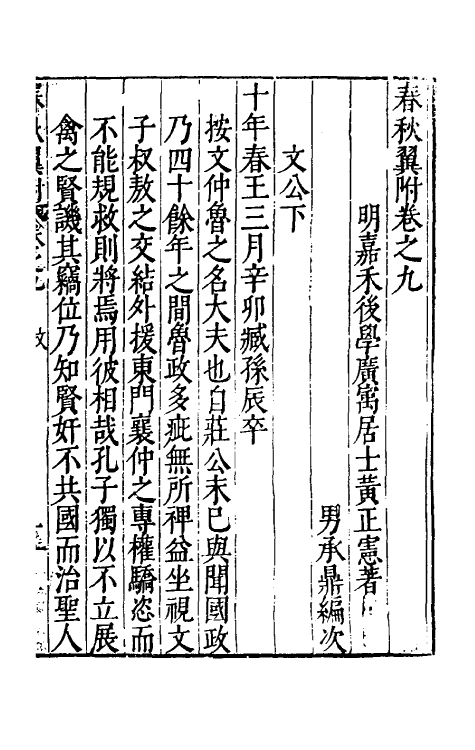 春秋翼附卷之九
明嘉禾後學廣寓居士黃正憲著
男承鼎編次
文公下
十年春王三月辛卯臧孫辰卒
按文仲魯之名大夫也自莊公末巳與聞國政
乃四十餘年之間魯政多疵無所裨益坐視文
子叔敖之交結外援東門襄仲之專權驕恣而
不能規救則將焉用彼相哉孔子獨以不立展
禽之賢譏其竊位乃知賢奸不共國而治聖人